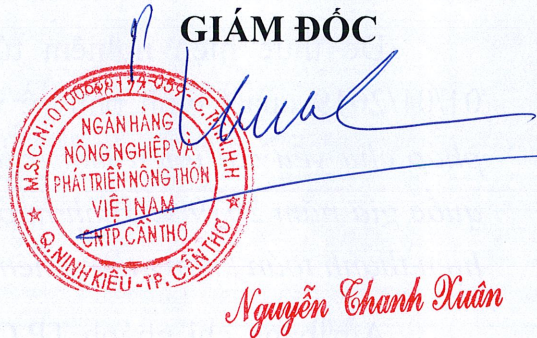 GIÁM ĐỐC
M.S.C.N: 0100686174-059-C.T.T.N.H.H
NGÂN HÀNG
NÔNG NGHIỆP VÀ
PHÁT TRIỂN NÔNG THÔN
VIỆT NAM
CNTP.CẦN THƠ
Q.NINH KIỀU-TP.CẦN THƠ
Nguyễn Thanh Xuân